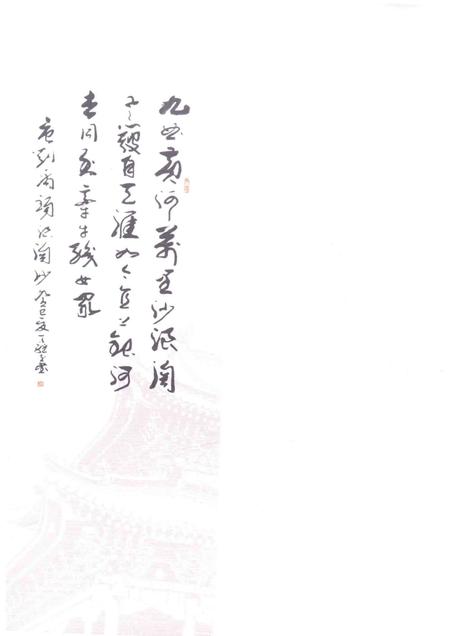 九曲黄河万里沙浪淘
风簸自天涯如今直上银河
去同到牵牛织女家
唐刘禹锡浪淘沙癸巳夏